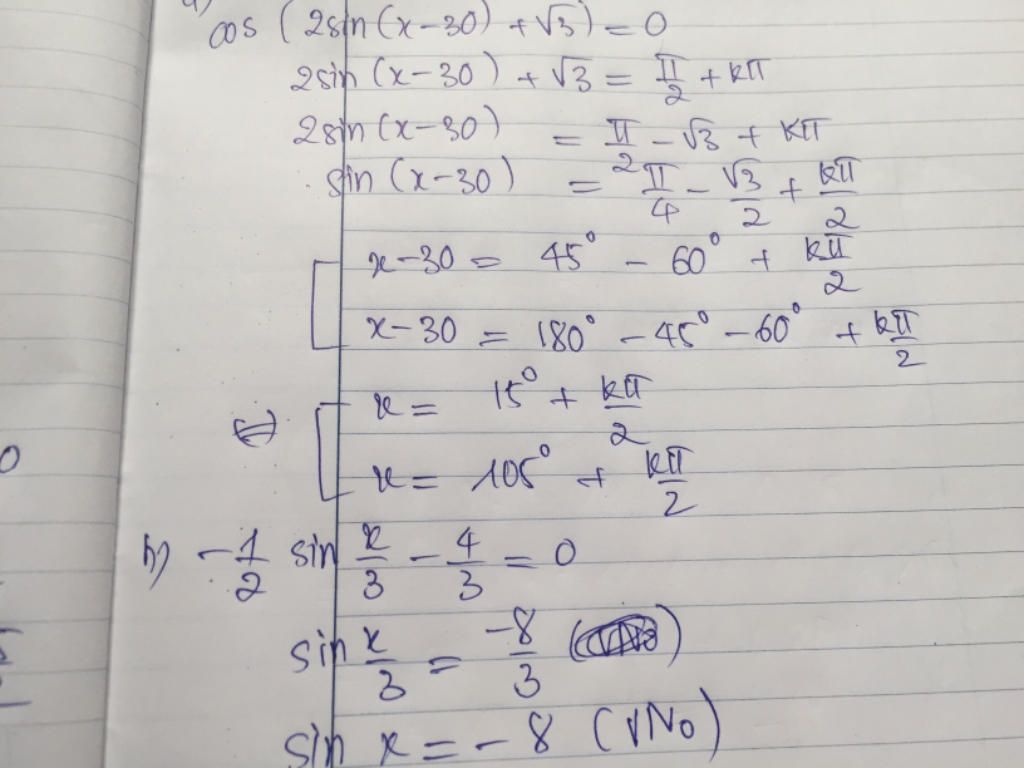 cos (2sin(x-30) + √3) = 0
2sin(x-30) + √3 = π/2 + kπ
2sin(x-30) = π/2 - √3 + kπ
sin(x-30) = π/4 - √3/2 + kπ/2
x-30 = 45° - 60° + kπ/2
x-30 = 180° - 45° - 60° + kπ/2
⇔ x = 15° + kπ/2
x = 105° + kπ/2
h) -1/2 sin x/3 - 4/3 = 0
sin x/3 = -8/3
sin x = -8 (VNo)